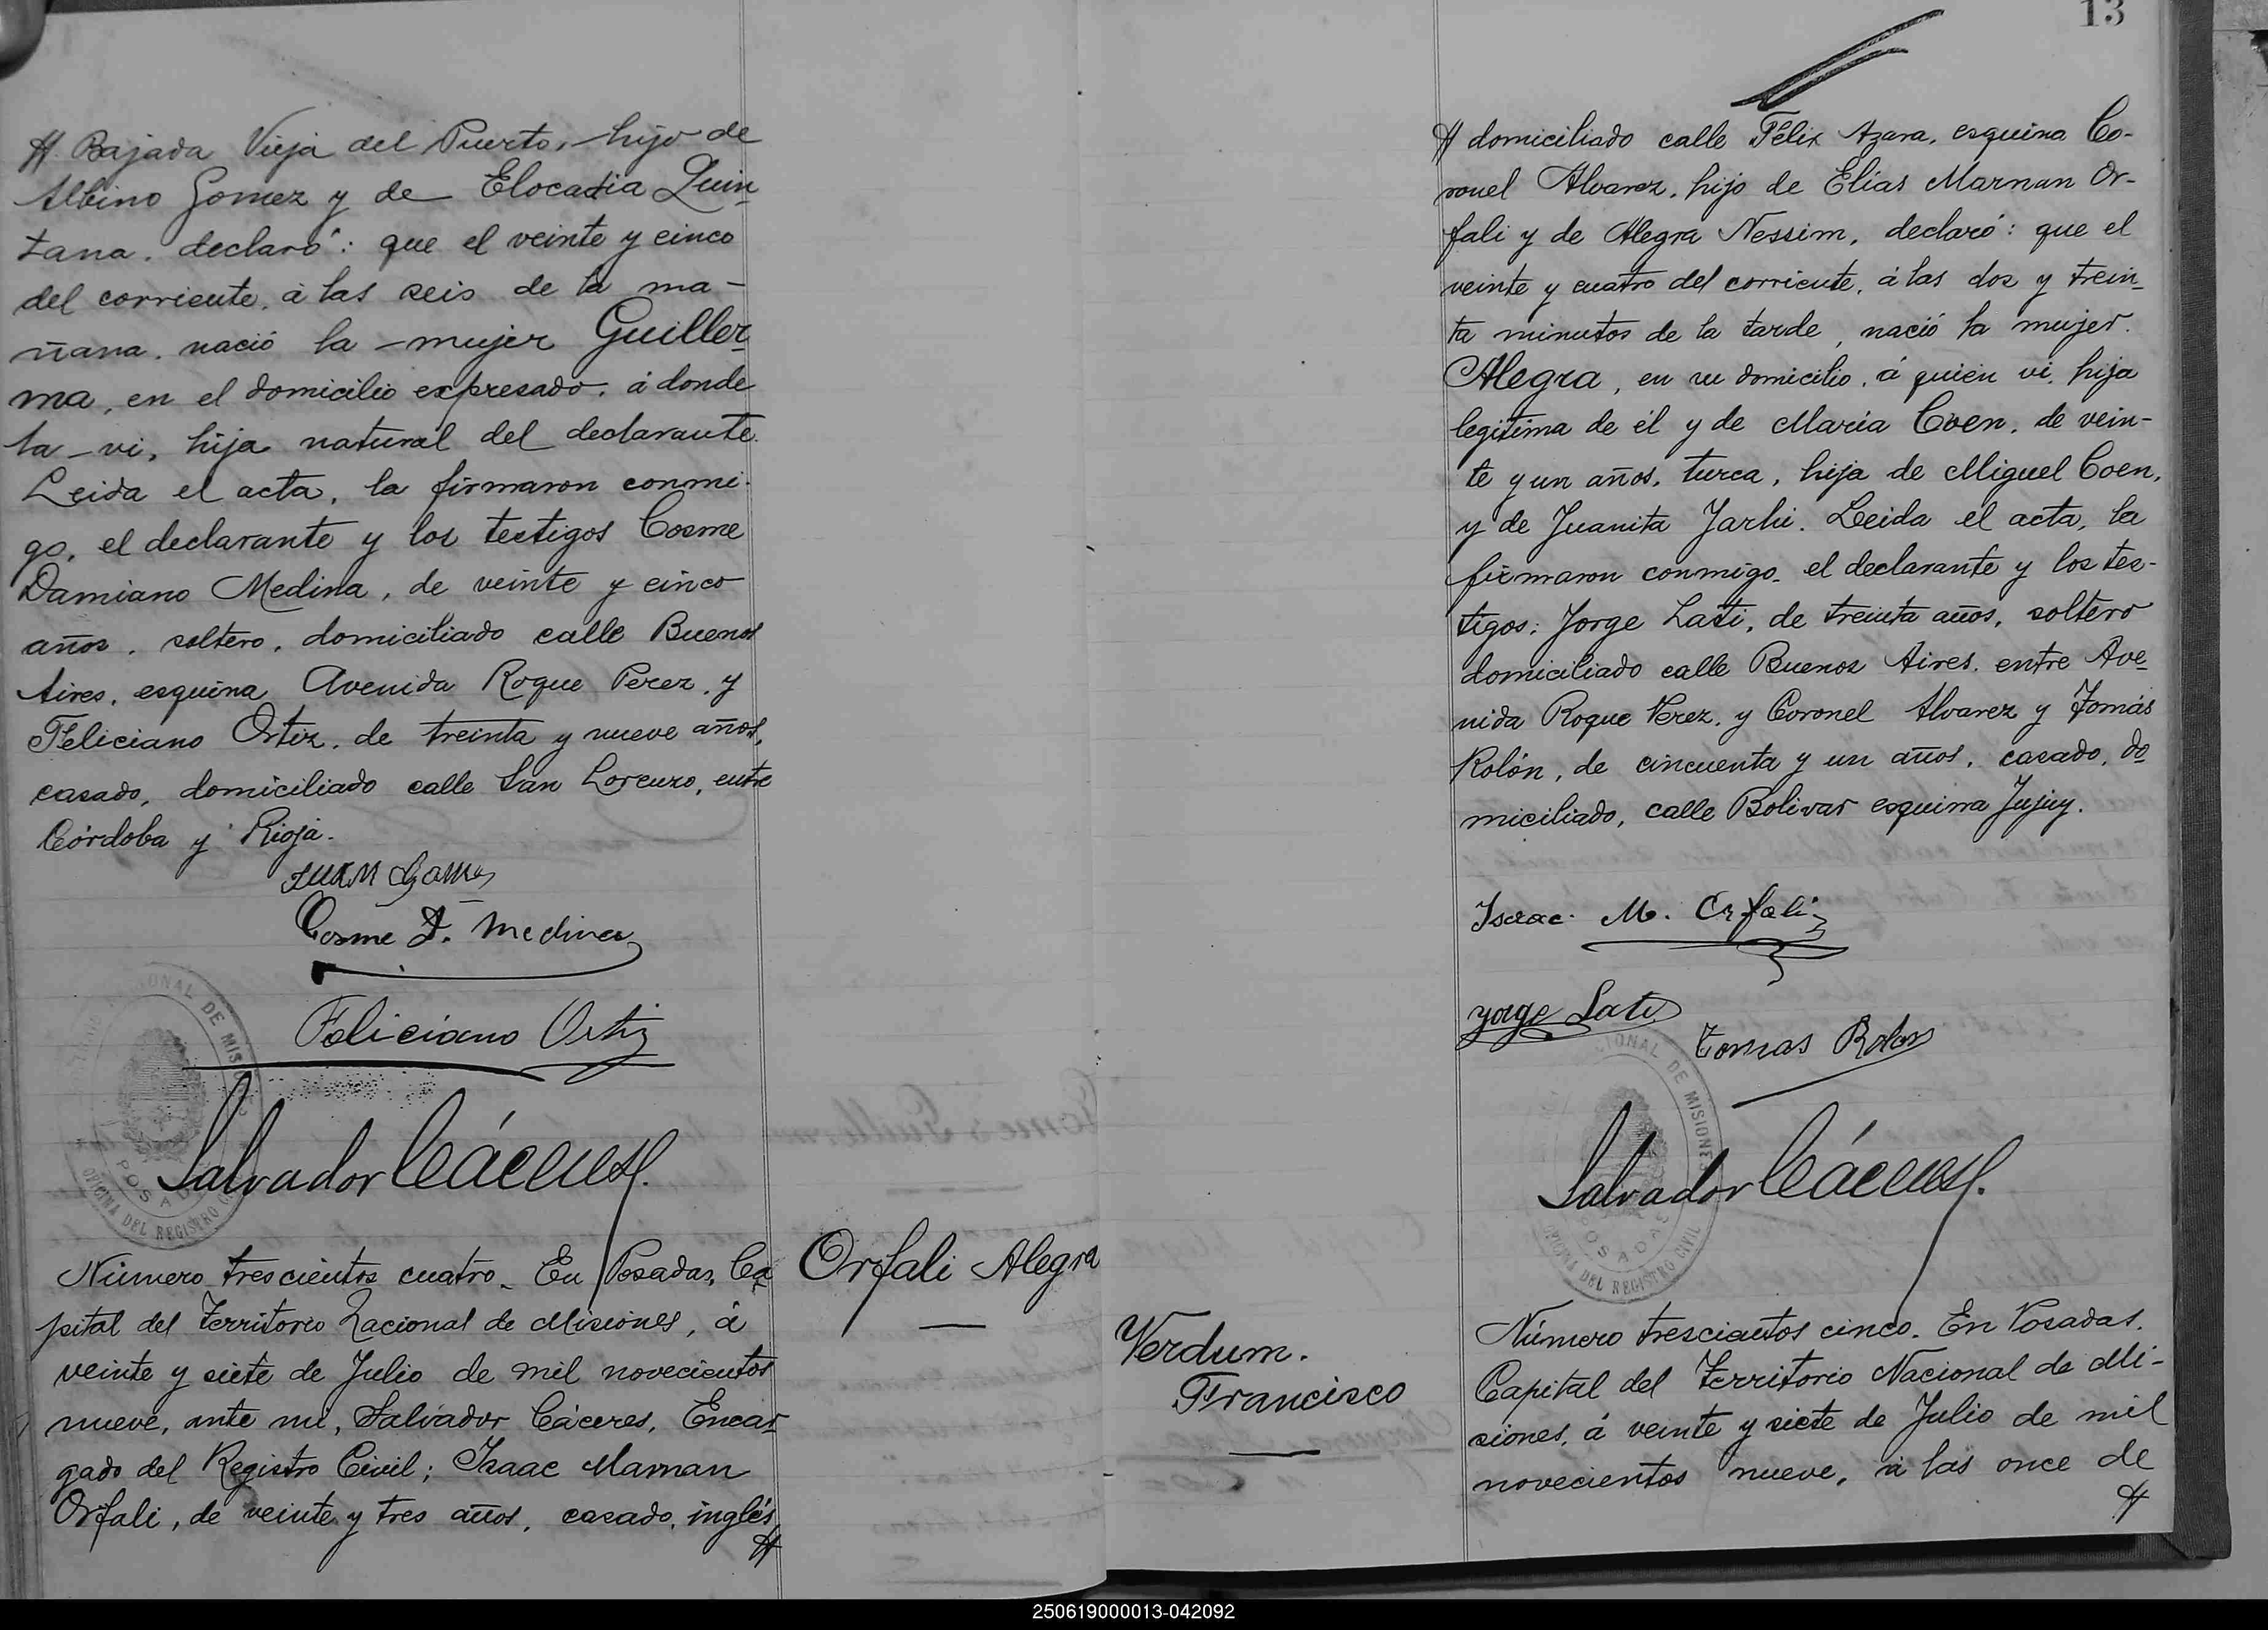 H Bajada Vieja del Puerto, hijo de
Albino Gomez y de Elocadia Quin-
tana, declaró: que el veinte y cinco
del corriente, á las seis de la ma-
ñana, nació la mujer Guiller-
ma, en el domicilio expresado, á donde
la vi, hija natural del declarante.
Leida el acta, la firmaron conmi-
go, el declarante y los testigos Cosme
Damiano Medina, de veinte y cinco
años, soltero, domiciliado calle Buenos
Aires, esquina Avenida Roque Perez, y
Feliciano Ortiz, de treinta y nueve años,
casado, domiciliado calle San Lorenzo, entre
Córdoba y Rioja.
Juan Gomez
Cosme D. Medina
Feliciano Ortiz
Salvador Cáceres H.
Número trescientos cuatro. En Posadas, Ca-
pital del Territorio Nacional de Misiones, á
veinte y siete de Julio de mil novecientos
nueve, ante mi, Salvador Cáceres, Encar-
gado del Registro Civil; Isaac Marnan
Orfali, de veinte y tres años, casado, inglés,
H
Orfali Alegra
13
H domiciliado calle Félix Azara, esquina Co-
ronel Alvarez, hijo de Elías Marnan Or-
fali y de Alegra Nessim, declaró: que el
veinte y cuatro del corriente, á las dos y trein-
ta minutos de la tarde, nació la mujer
Alegra, en su domicilio, á quien vi, hija
legitima de él y de María Coen, de vein-
te y un años, turca, hija de Miguel Coen,
y de Juanita Jarhi. Leida el acta, la
firmaron conmigo, el declarante y los tes-
tigos: Jorge Lati, de treinta años, soltero
domiciliado calle Buenos Aires, entre Ave-
nida Roque Perez, y Coronel Alvarez y Tomás
Rolón, de cincuenta y un años, casado, do-
miciliado, calle Bolivar esquina Jujuy.
Isaac M. Orfali
Jorge Lati
Tomas Rolon
Salvador Cáceres H.
Verdum.
Francisco
Número trescientos cinco. En Posadas,
Capital del Territorio Nacional de Mi-
siones, á veinte y siete de Julio de mil
novecientos nueve, á las once de
H
250619000013-042092